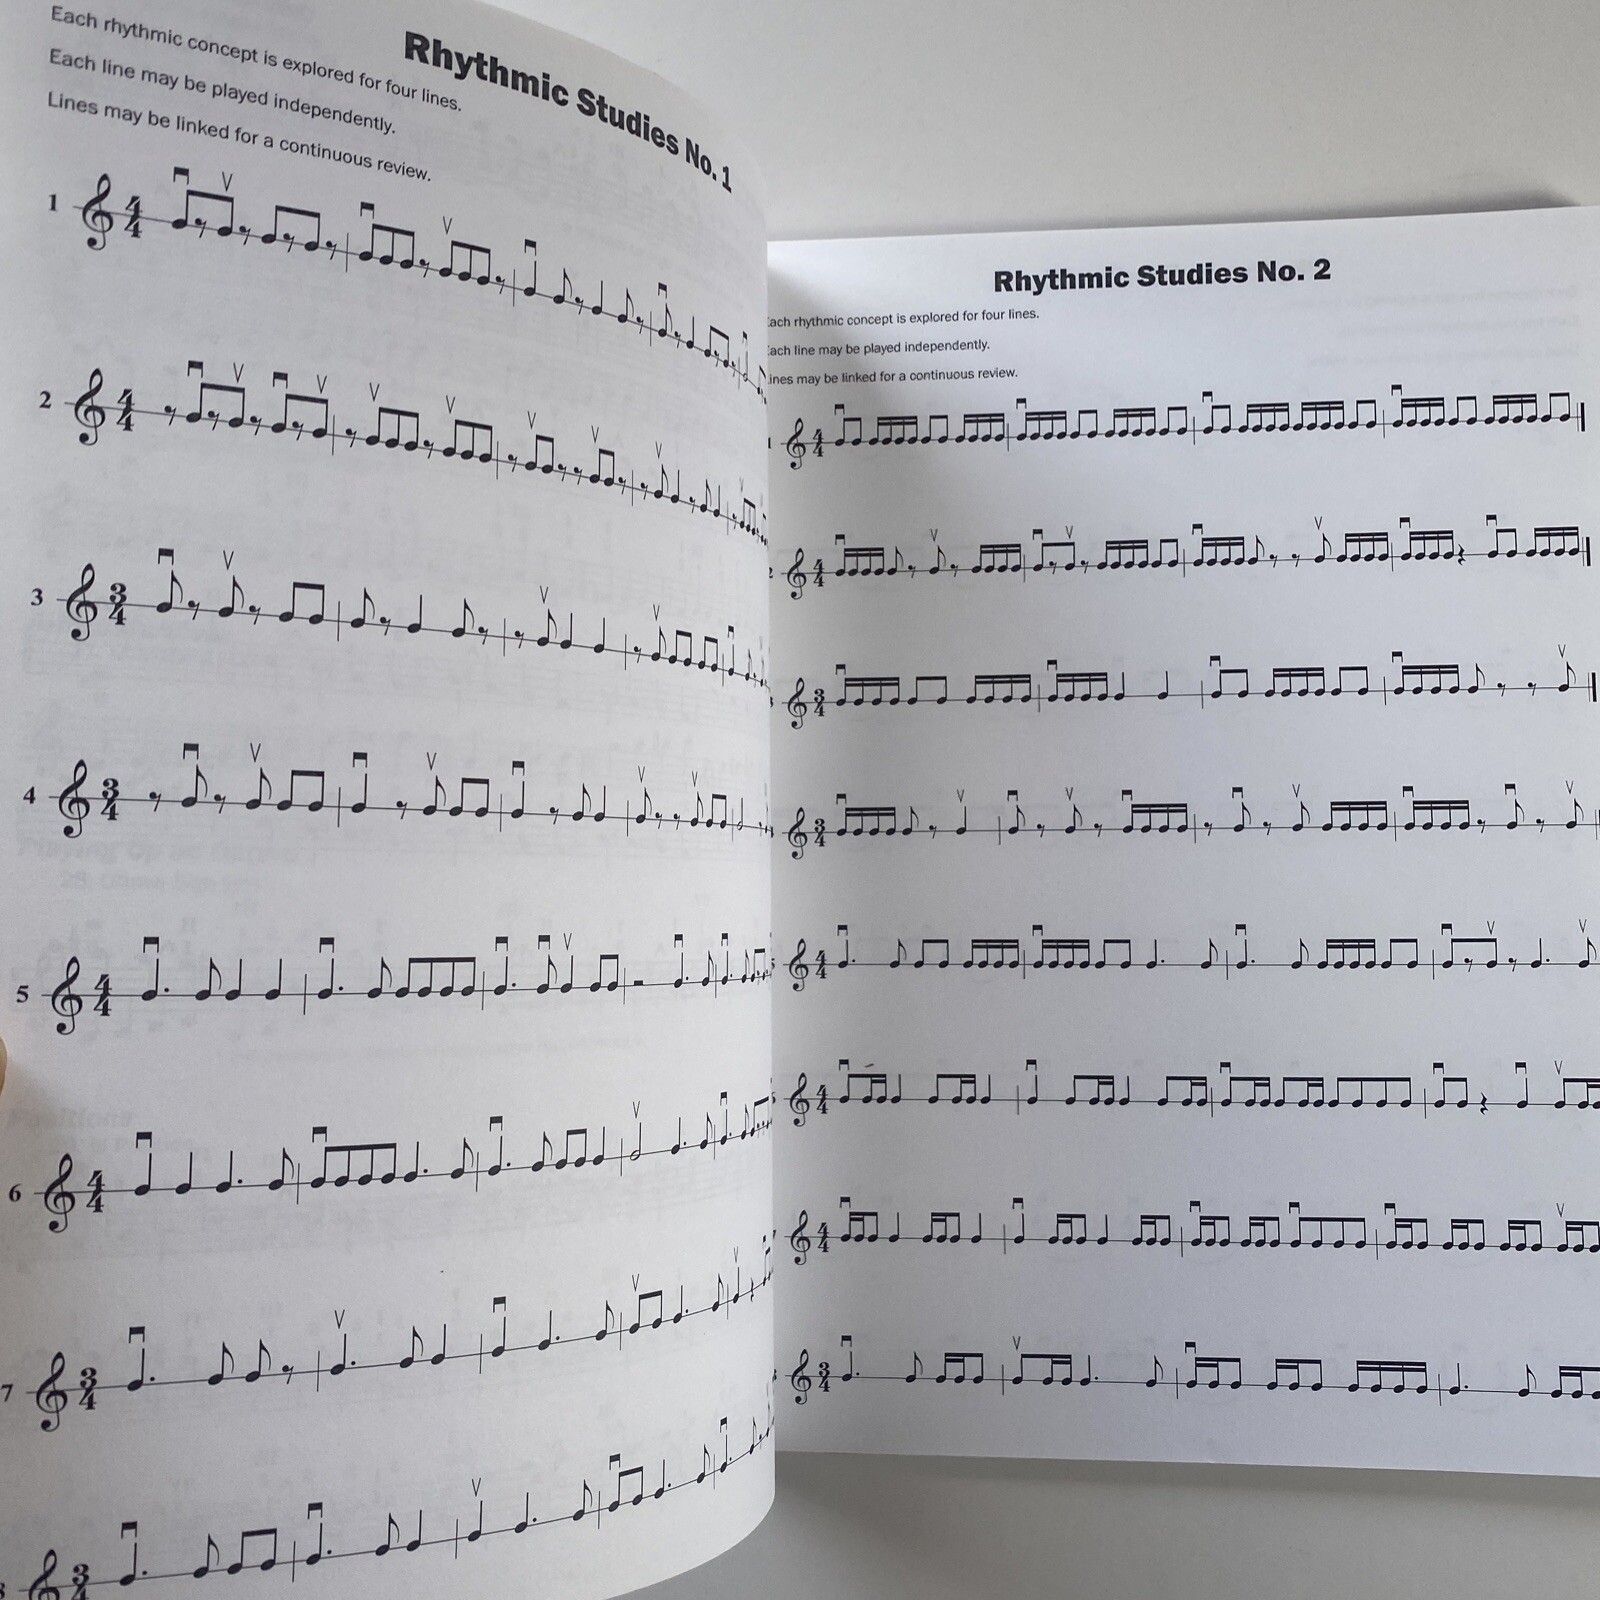 Rhythmic Studies No. 1
Each rhythmic concept is explored for four lines.
Each line may be played independently.
Lines may be linked for a continuous review.
1
4
4
2
4
4
3
3
4
4
3
4
5
4
4
6
4
4
7
3
4
3
4
Rhythmic Studies No. 2
Each rhythmic concept is explored for four lines.
Each line may be played independently.
Lines may be linked for a continuous review.
4
4
4
4
3
4
3
4
4
4
4
4
4
4
3
4